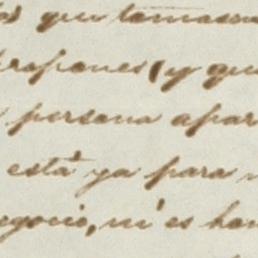 que tomase
(y que
persona apar
está ya para
egocio, ni es hon